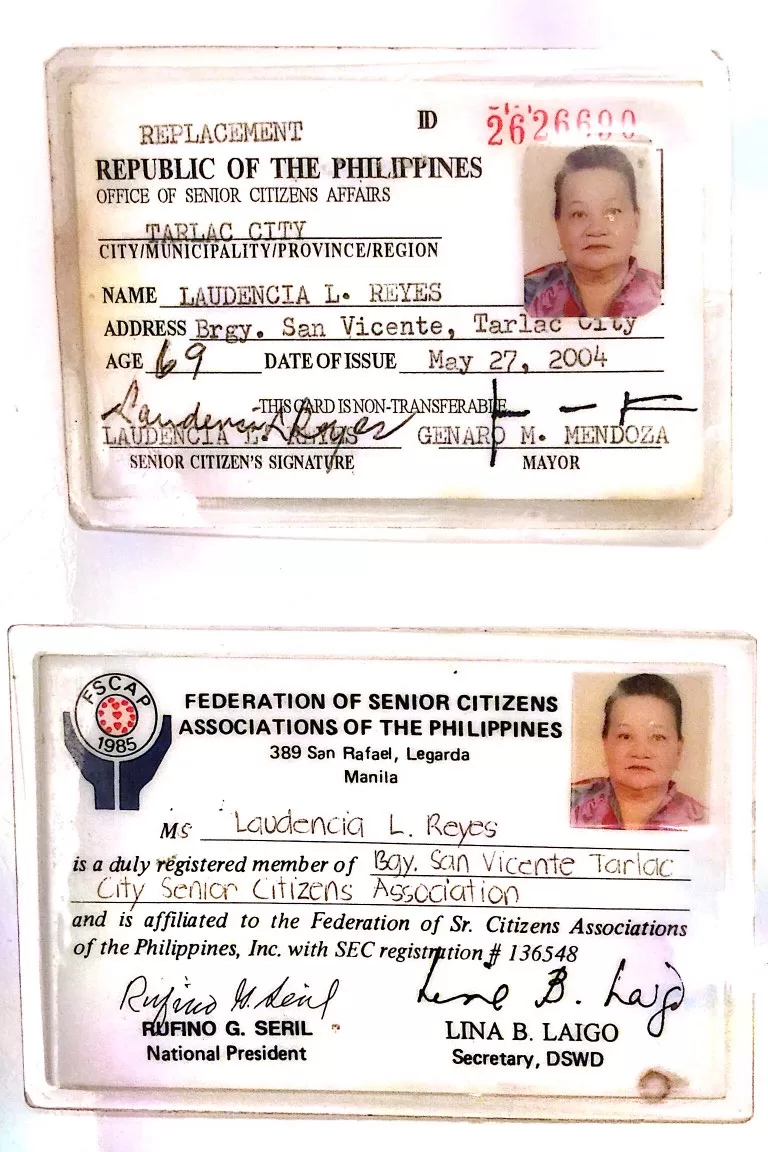 REPLACEMENT
ID 2626690
REPUBLIC OF THE PHILIPPINES
OFFICE OF SENIOR CITIZENS AFFAIRS
TARLAC CITY
CITY/MUNICIPALITY/PROVINCE/REGION
NAME LAUDENCIA L. REYES
ADDRESS Brgy. San Vicente, Tarlac City
AGE 69 DATE OF ISSUE May 27, 2004
-THIS CARD IS NON-TRANSFERABLE
Laudencia L Reyes
LAUDENCIA L. REYES GENARO M. MENDOZA
SENIOR CITIZEN'S SIGNATURE MAYOR
FSCAP
1985
FEDERATION OF SENIOR CITIZENS
ASSOCIATIONS OF THE PHILIPPINES
389 San Rafael, Legarda
Manila
MS Laudencia L. Reyes
is a duly registered member of Bgy. San Vicente Tarlac
City Senior Citizens Association
and is affiliated to the Federation of Sr. Citizens Associations
of the Philippines, Inc. with SEC registration # 136548
Rufino G. Seril Lina B. Laigo
RUFINO G. SERIL LINA B. LAIGO
National President Secretary, DSWD